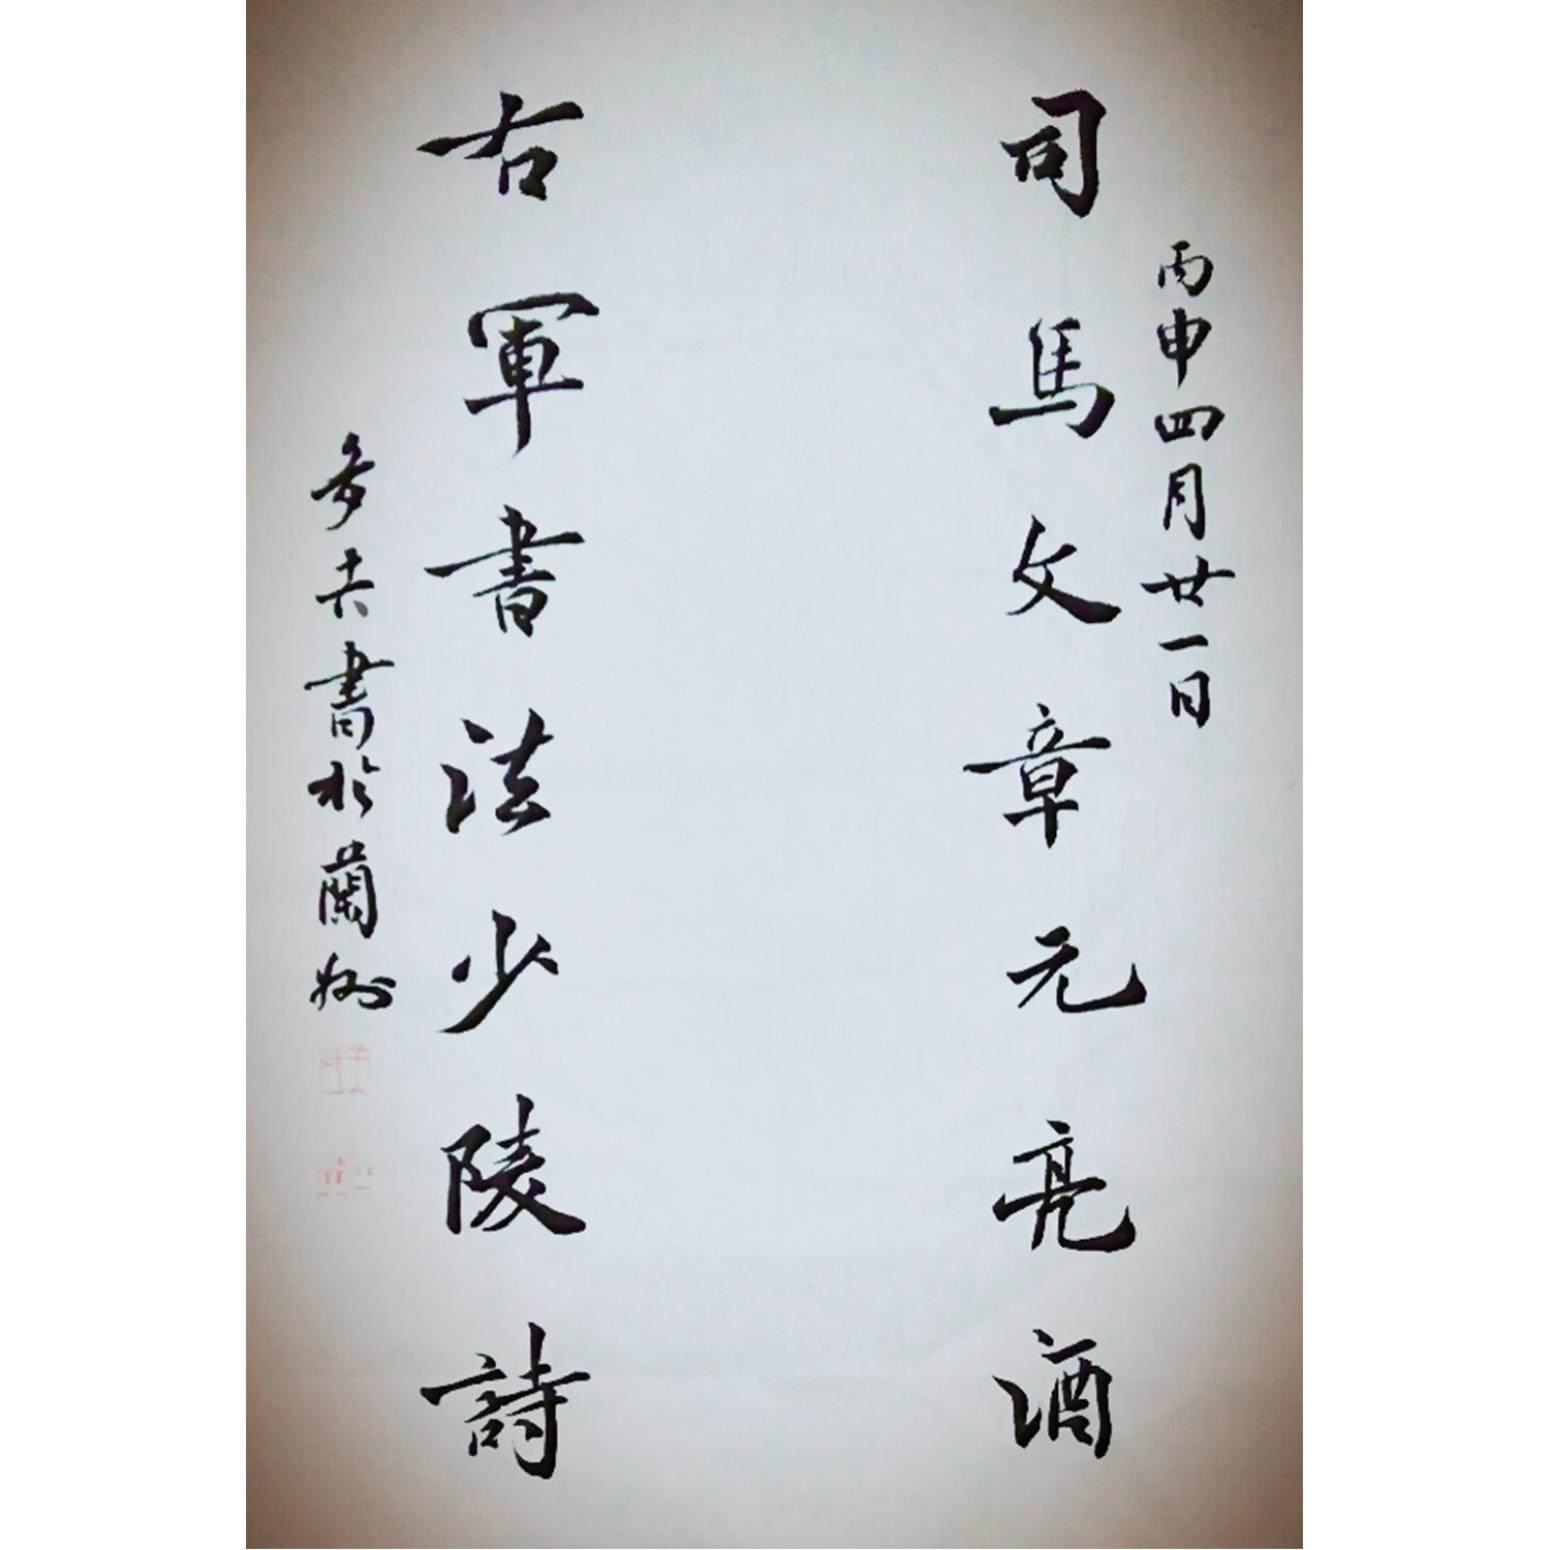 丙申四月廿一日
司馬文章元亮酒
右軍書法少陵詩
多書於蘭州